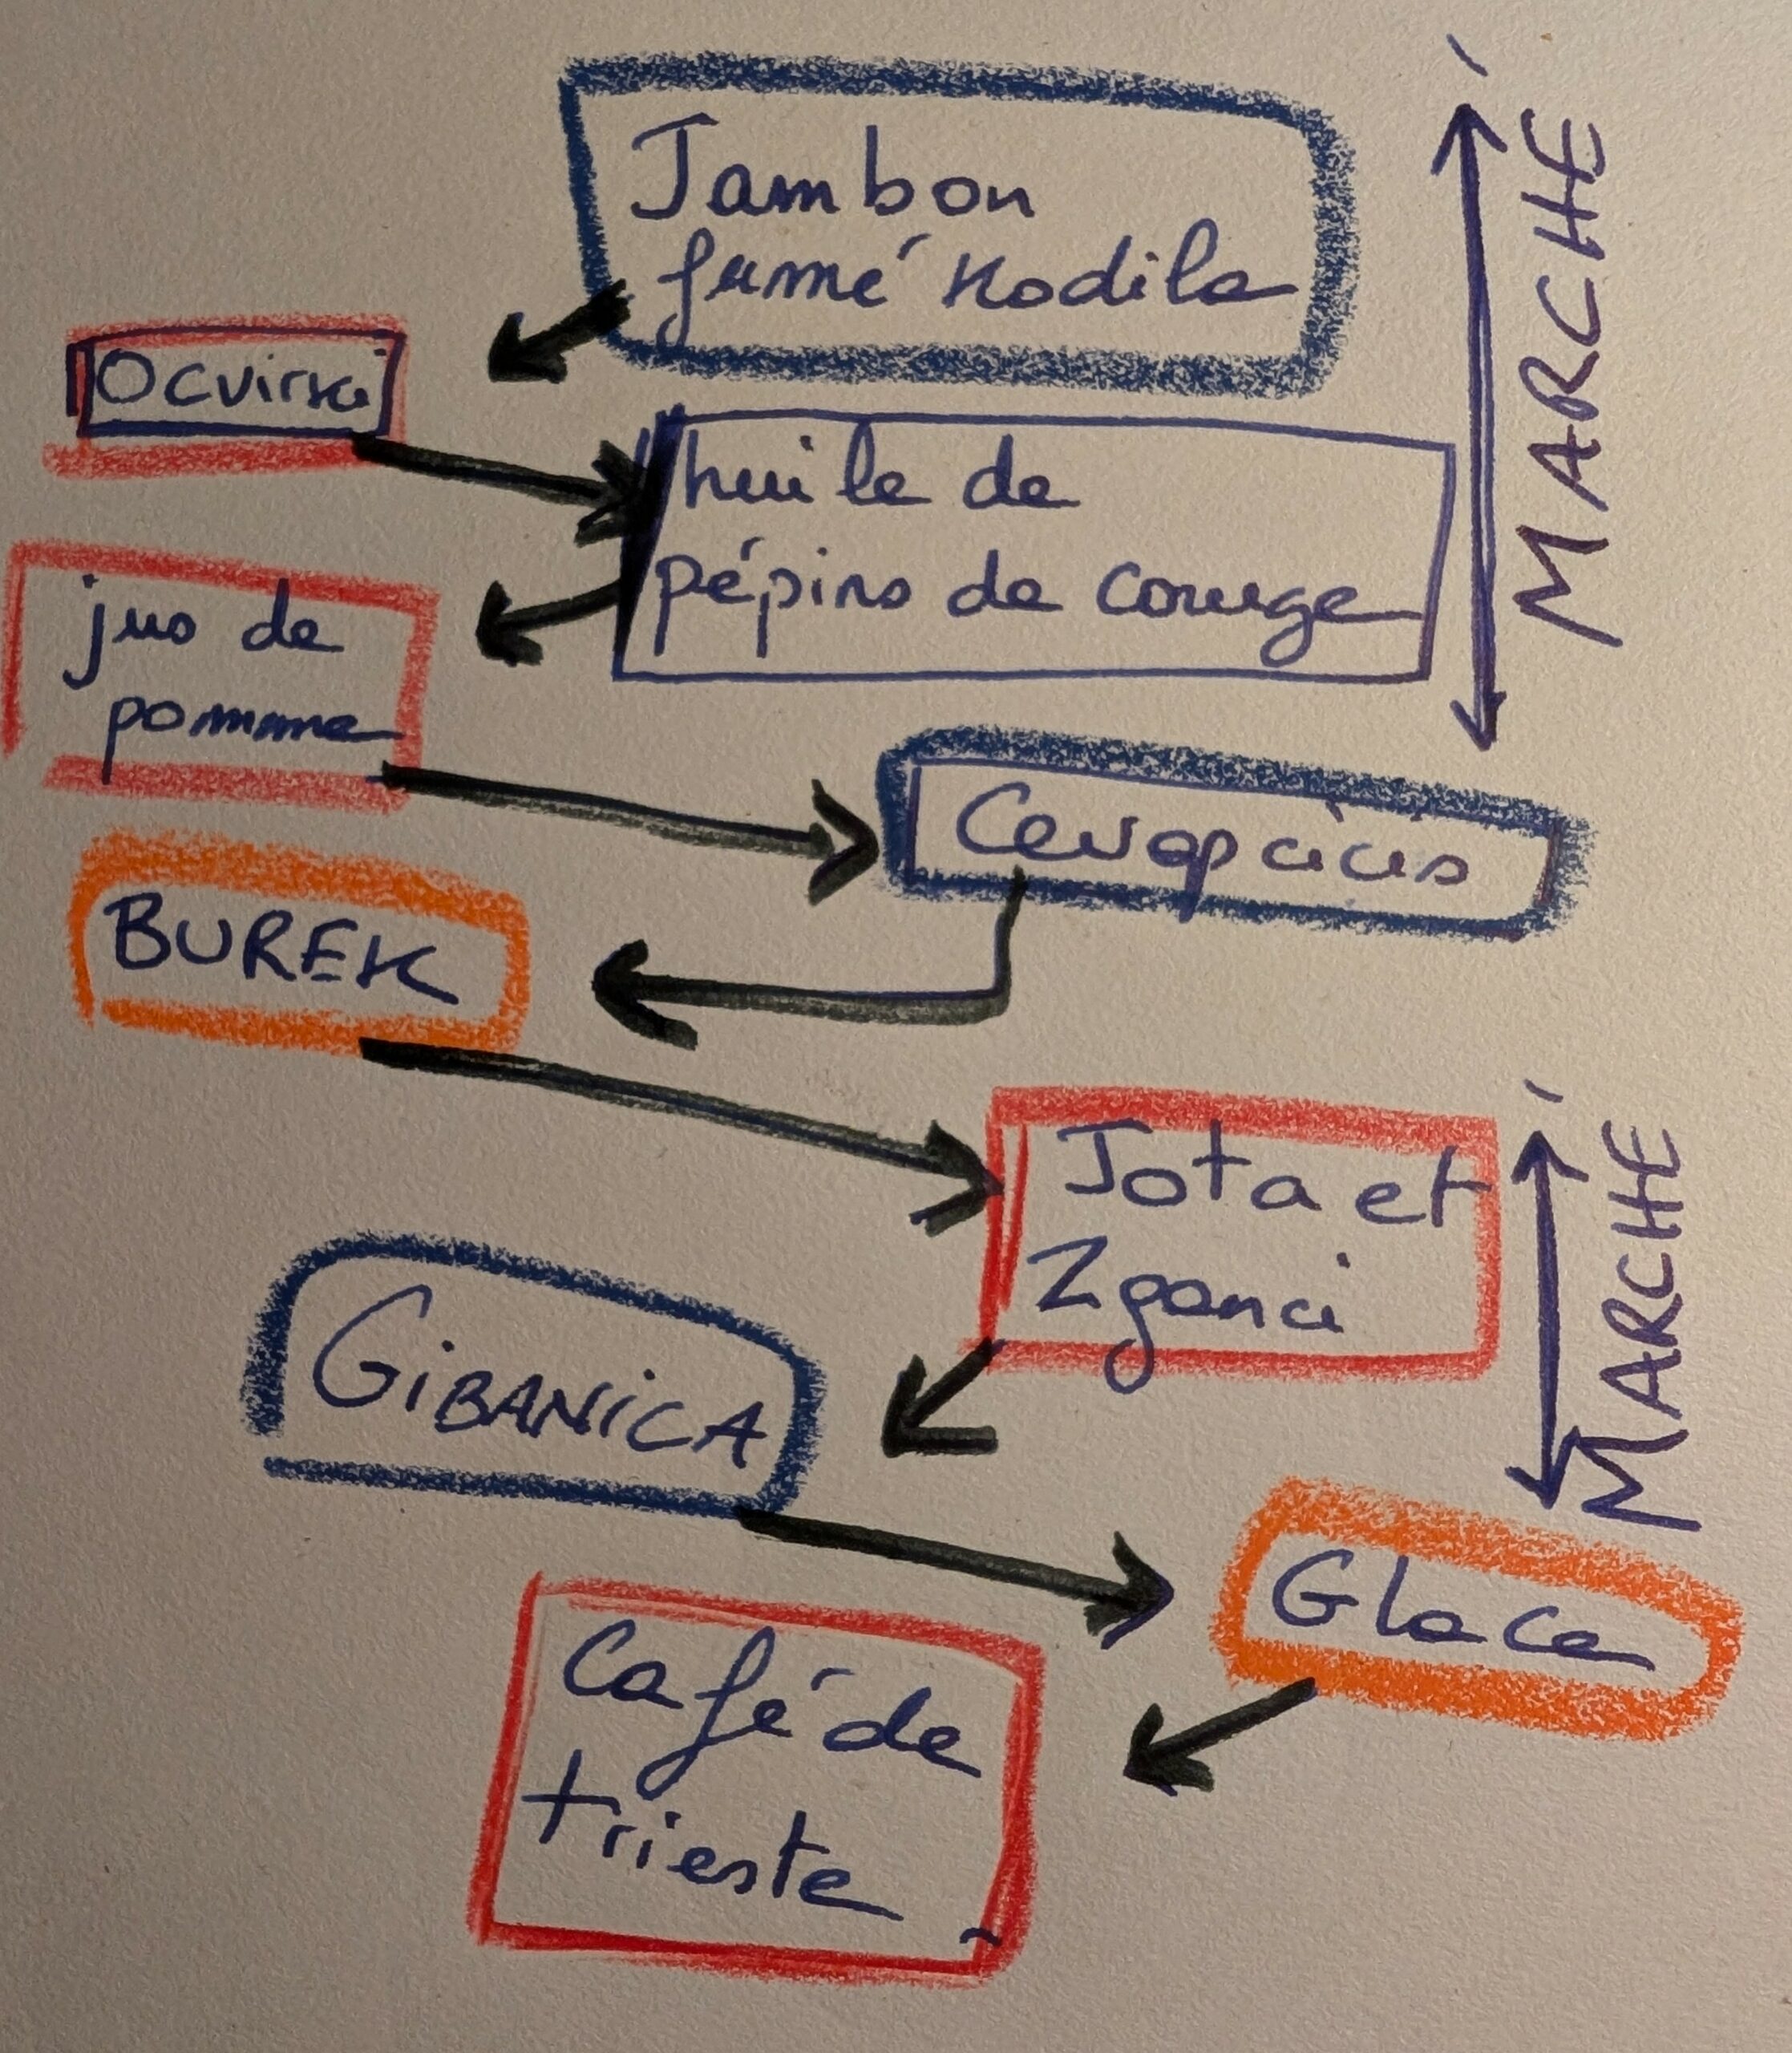 Jambon
fumé Kodila
MARCHÉ
Ocvirki
huile de
pépins de courge
jus de
pomme
Cevapcicis
BUREK
Jota et
Zganci
MARCHÉ
GiBANiCA
Glace
Café de
trieste